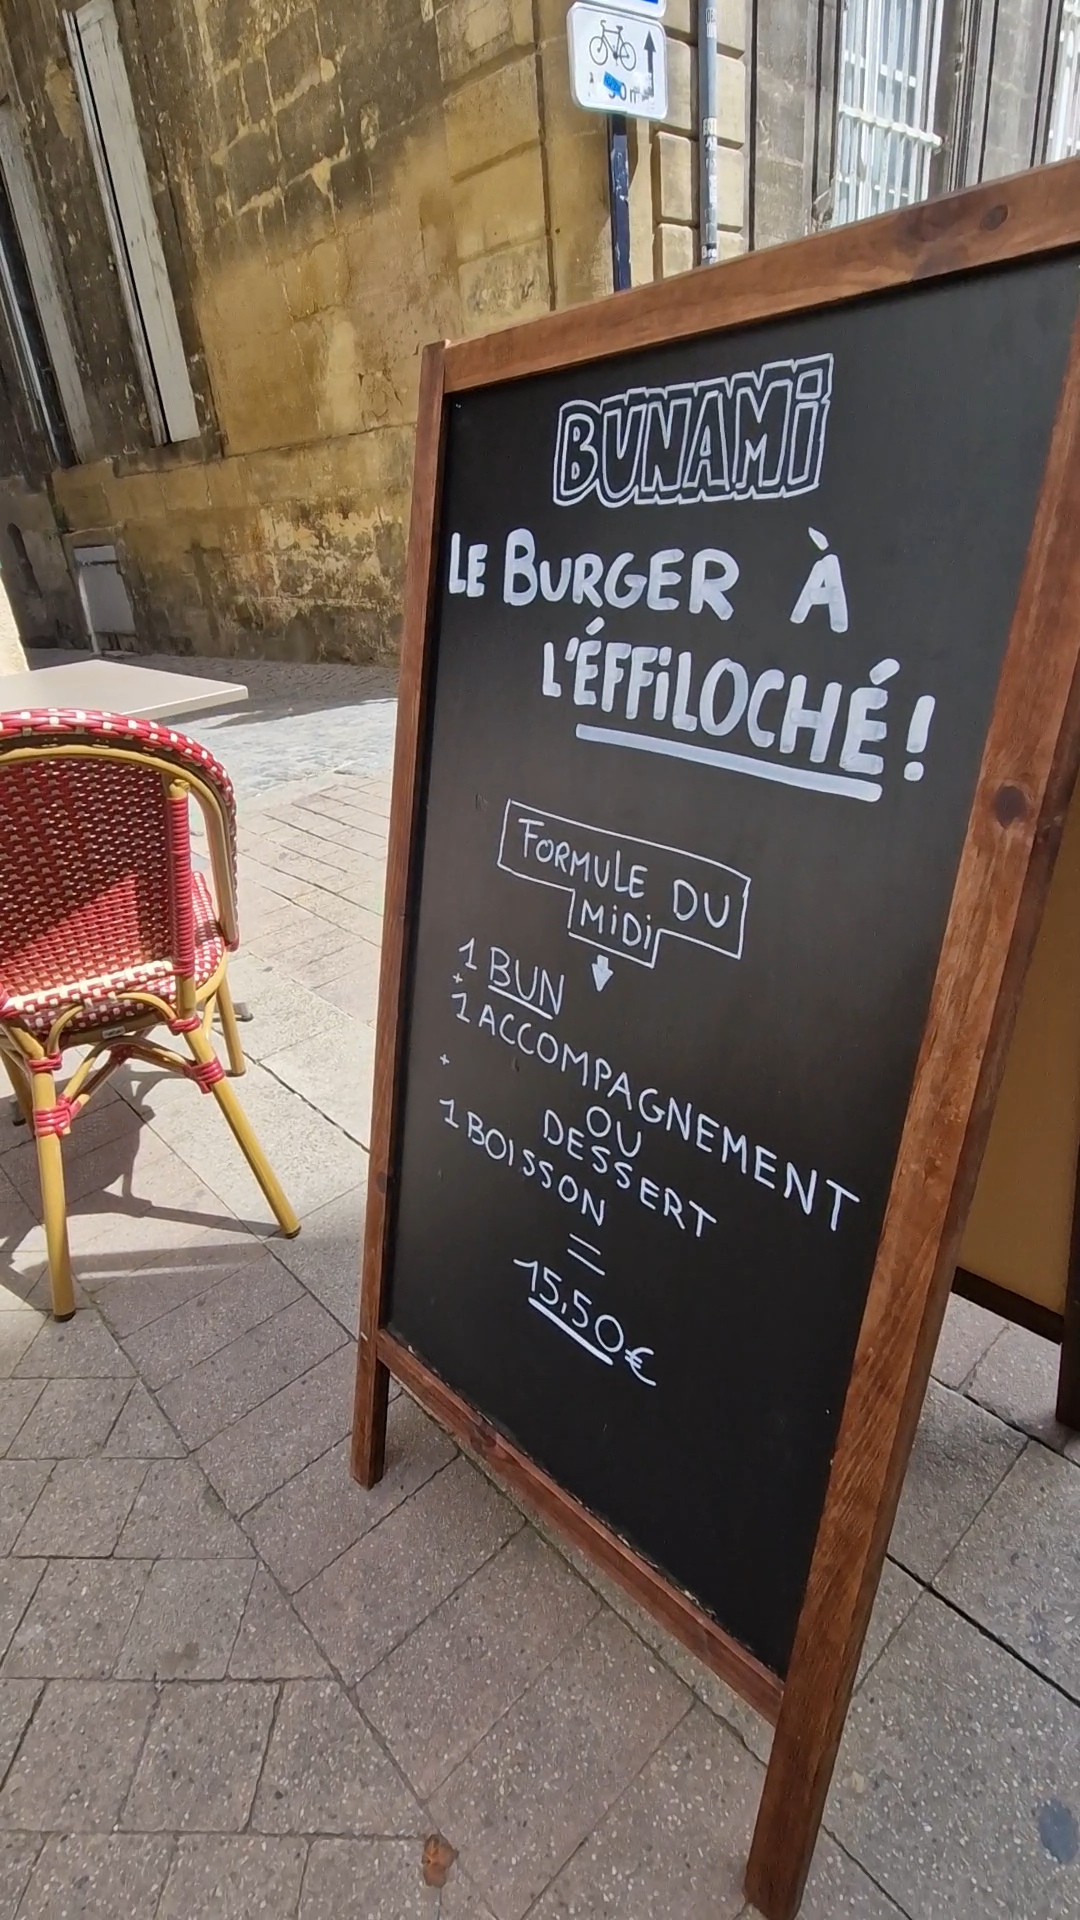 BUNAMi
LE BURGER À
L'ÉFFiLOCHÉ!
FORMULE DU
MiDi
1 BUN
+
1 ACCOMPAGNEMENT
+
OU
DESSERT
1 BOISSON
=
15,50€